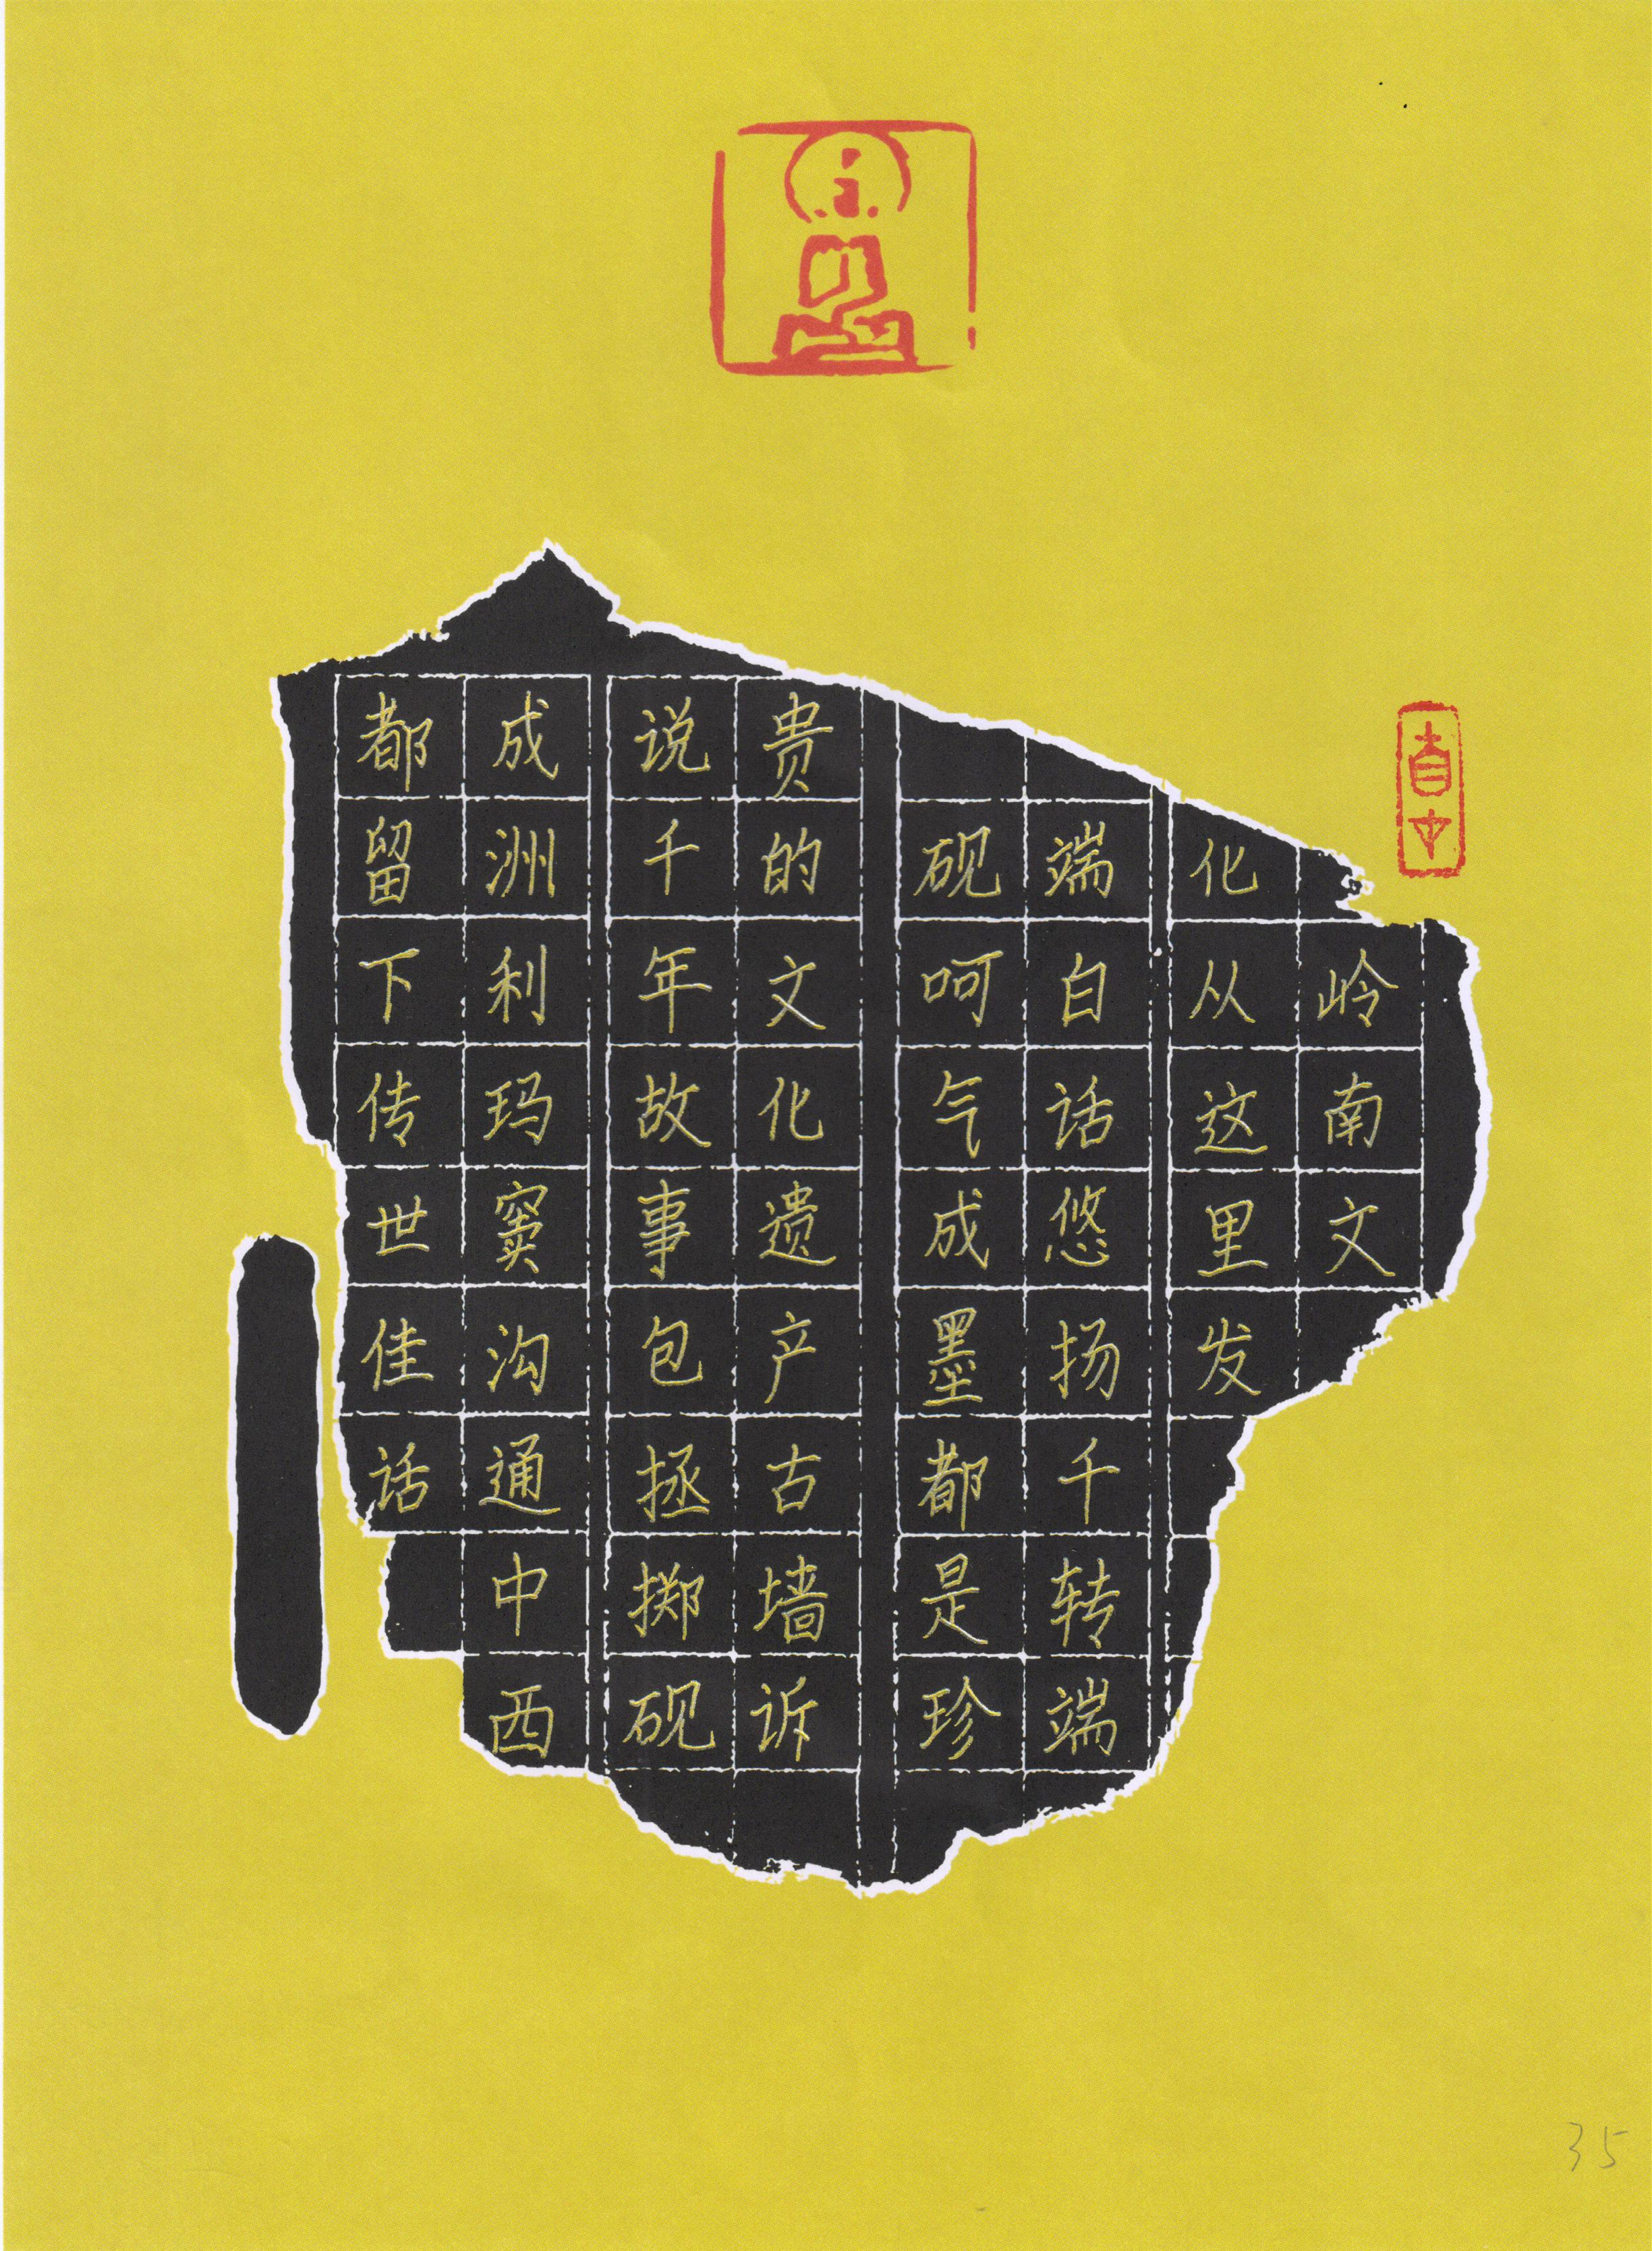 岭南文
化从这里发
端白话悠扬千转端
砚呵气成墨都是珍
贵的文化遗产古墙诉
说千年故事包拯掷砚
成洲利玛窦沟通中西
都留下传世佳话
35